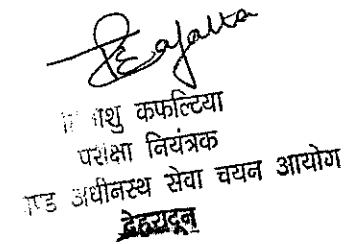 कफल्टिया
परीक्षा नियंत्रक
अधीनस्थ सेवा चयन आयोग
देहरादून